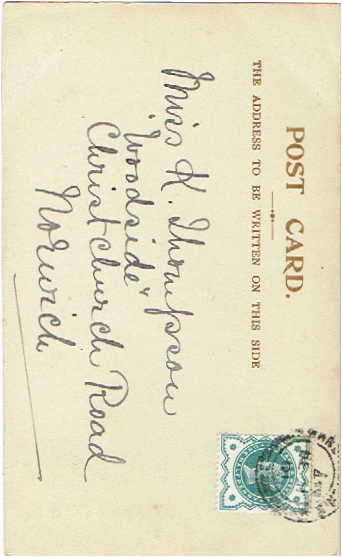 POST CARD.
THE ADDRESS TO BE WRITTEN ON THIS SIDE
Miss K. Thompson
"Woodside"
Christchurch Road
Norwich